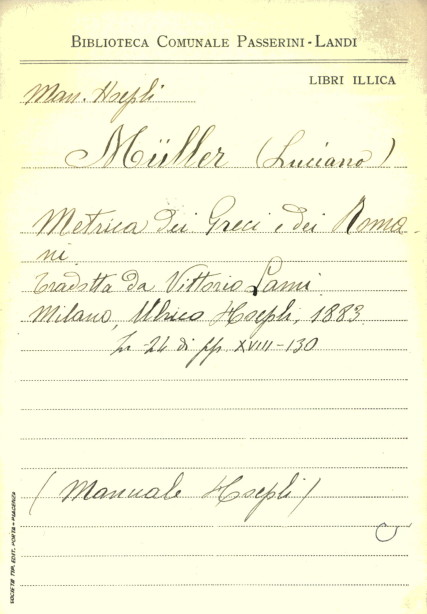 BIBLIOTECA COMUNALE PASSERINI-LANDI
LIBRI ILLICA
Man. Hoepli
Müller (Luciano)
Metrica dei Greci e dei Roma-
ni.
Tradotta da Vittorio Lami.
Milano, Ulrico Hoepli, 1883
In -24 di pp. XVIII-130
(Manuale Hoepli)
SOCIETÀ TIP. EDIT. PORTA-PIACENZA